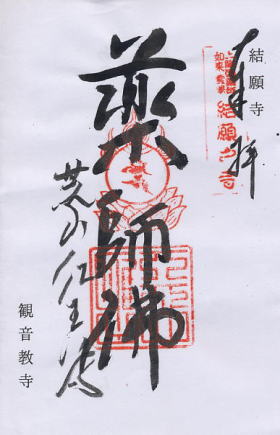 結願寺
奉拝
結願之寺
薬師佛
芝山仁王尊
観音教寺